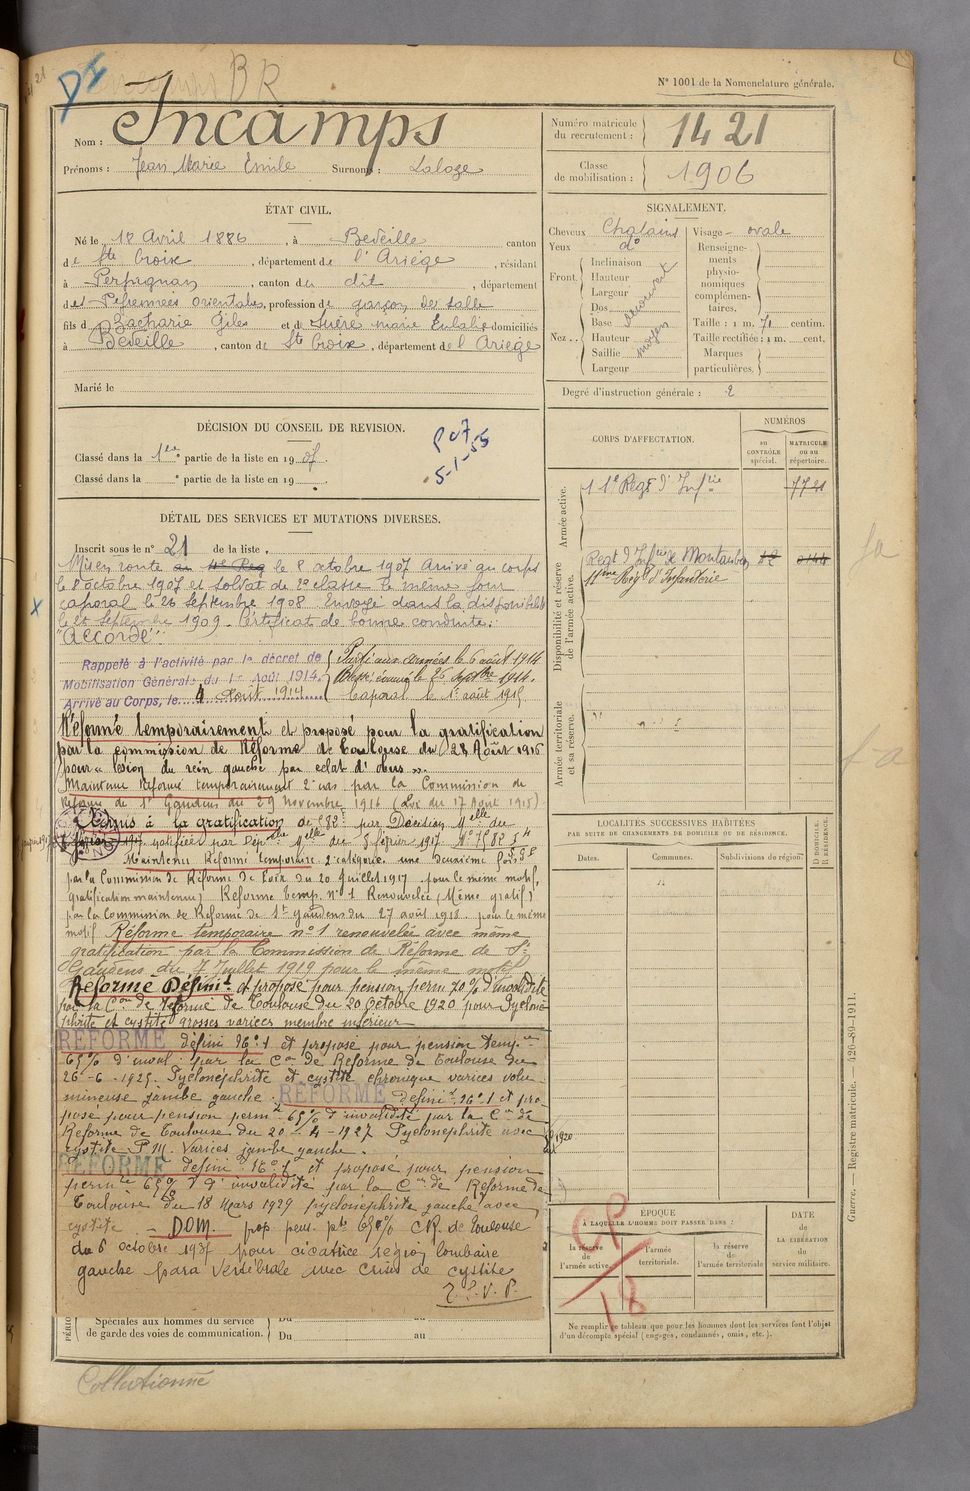 BR
N° 1001 de la Nomenclature générale.
Nom : Incamps
Prénoms : Jean Marie Emile Surnoms : Laloze
Numéro matricule du recrutement : 1421
Classe de mobilisation : 1906
ÉTAT CIVIL.
Né le 18 Avril 1886, à Bedeille canton
de Ste Croix, département de l'Ariège, résidant
à Perpignan, canton de dit, département
des Pyrennées Orientales, profession de garçon de salle
fils de Zacharie Giles et de Suère marie Eulalie domiciliés
à Bedeille, canton de Ste Croix, département de l'Ariège
Marié le
SIGNALEMENT.
Cheveux Chatains Visage ovale
Yeux d°
Front. Inclinaison
Hauteur
Largeur
Nez .. Dos
Base
Hauteur
Saillie moyen
Largeur
Renseignements physionomiques complémentaires.
Taille : 1 m. 71 centim.
Taille rectifiée : 1 m. cent.
Marques particulières.
Degré d'instruction générale : 2
DÉCISION DU CONSEIL DE REVISION.
Classé dans la 1ère partie de la liste en 1907.
Classé dans la e partie de la liste en 19 .
5-1-55
DÉTAIL DES SERVICES ET MUTATIONS DIVERSES.
Inscrit sous le n° 21 de la liste.
Mis en route le 8 octobre 1907 Arrivé au corps
le 8 octobre 1907 et soldat de 2e classe le même jour
caporal le 26 septembre 1908. Envoyé dans la disponibilité
le 25 septembre 1909. Certificat de bonne conduite.
"Accordé"
Rappelé à l'activité par le décret de
Mobilisation Générale du 1er Août 1914.
Arrivé au Corps, le 4 Août 1914
Parti aux armées le 6 août 1914
Blessé évacué le 26 septbre 1914.
Caporal le 1er août 1915
Réformé temporairement et proposé pour la gratification
par la commission de Réforme de Toulouse du 28 Août 1915
pour « lésion du rein gauche par eclat d'obus ».
Maintenu Réformé temporairement 2e cat. par la Commission de
Réforme de St Gaudens du 29 Novembre 1916 (Loi du 17 Août 1915)
Admis à la gratification de par Décision Melle du
1917 notifiée par Dépêche Melle du 8 février 1917 N°
Maintenu Réformé temporaire 2e catégorie une deuxième fois
par la Commission de Réforme de Foix du 20 Juillet 1917 pour le même motif,
gratification maintenue) Réformé temp. n° 1 Renouvelée (Même gratif)
par la Commission de Réforme de St Gaudens du 27 août 1918 pour le même
motif Réforme temporaire n° 1 renouvelée avec même
gratification par la Commission de Réforme de St
Gaudens du 7 Juillet 1919 pour le même motif
Réformé Définit. et proposé pour pension perm 70 % d'invalidité
par la Con de Réforme de Toulouse du 20 Octobre 1920 pour Pyeloné
phrite et cystite grosses varices membre inférieur
RÉFORMÉ défini N° 1 et proposé pour pension temp.re
65% d'inval. par la Con de Réforme de Toulouse du
26-6-1925. Pyelonéphrite et cystite chronique varices volu
mineuse jambe gauche. RÉFORMÉ défini. N° 1 et pro
posé pour pension permte 65% d'invalidité par la Con de
Réforme de Toulouse du 20-4-1927 Pyelonephrite avec
cystite P.M. Varices jambe gauche.
RÉFORMÉ défini N° 1 et proposé pour pension
permte 65% d'invalidité par la Con de Réforme de
Toulouse du 18 Mars 1929 pyelonéphrite gauche avec
cystite - DOM. prop pens. pte 65% CR. de Toulouse
du 6 octobre 1937 pour cicatrice région lombaire
gauche para vertébrale avec crises de cystite
T.S.V.P.
Spéciales aux hommes du service
de garde des voies de communication.
Du au
Du au
CORPS D'AFFECTATION.
NUMÉROS
au CONTRÔLE spécial.
MATRICULE ou au répertoire.
Armée active.
11e Regt d'Infrie 7721
Disponibilité et réserve de l'armée active.
Regt d'Infrie de Montauban
11ème Régt d'Infanterie
Armée territoriale et sa réserve.
LOCALITÉS SUCCESSIVES HABITÉES
PAR SUITE DE CHANGEMENTS DE DOMICILE OU DE RÉSIDENCE.
Dates. Communes. Subdivisions de région.
D DOMICILE.
R RÉSIDENCE.
ÉPOQUE
À LAQUELLE L'HOMME DOIT PASSER DANS :
la réserve de l'armée active.
l'armée territoriale.
la réserve de l'armée territoriale
DATE de LA LIBÉRATION du service militaire.
CP
18
Ne remplir ce tableau que pour les hommes dont les services font l'objet
d'un décompte spécial (engagés, condamnés, omis, etc.).
Guerre. — Registre matricule. — 426-89-1911.
Collationné